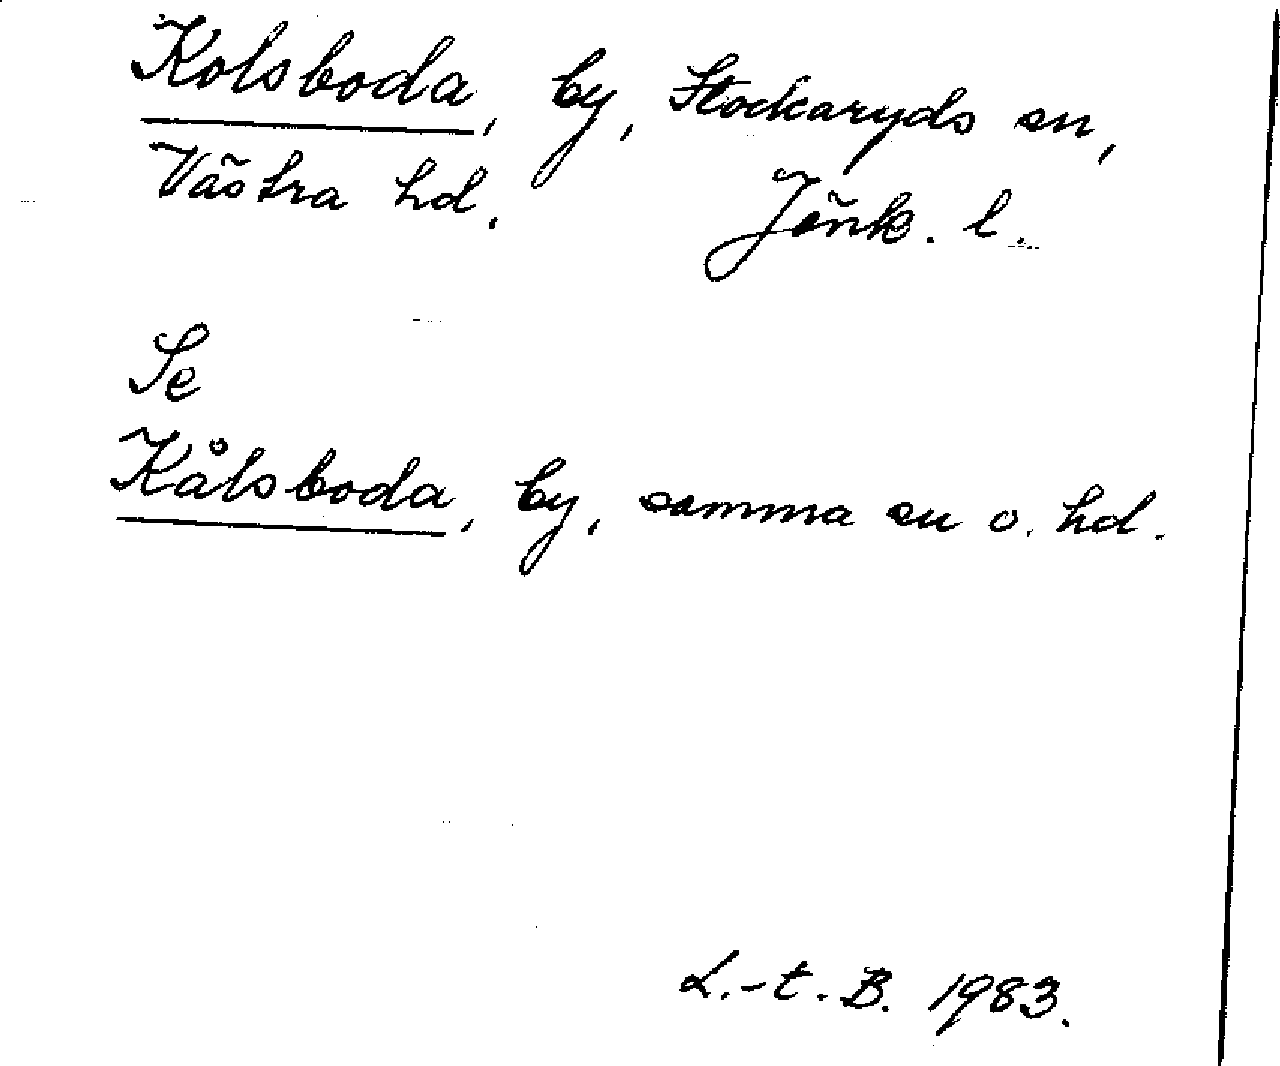 Kolsboda, by, Stockaryds sn,
Västra hd. Jönk. l.
Se
Kålsboda, by, samma sn o. hd.
L.-t. B. 1983.